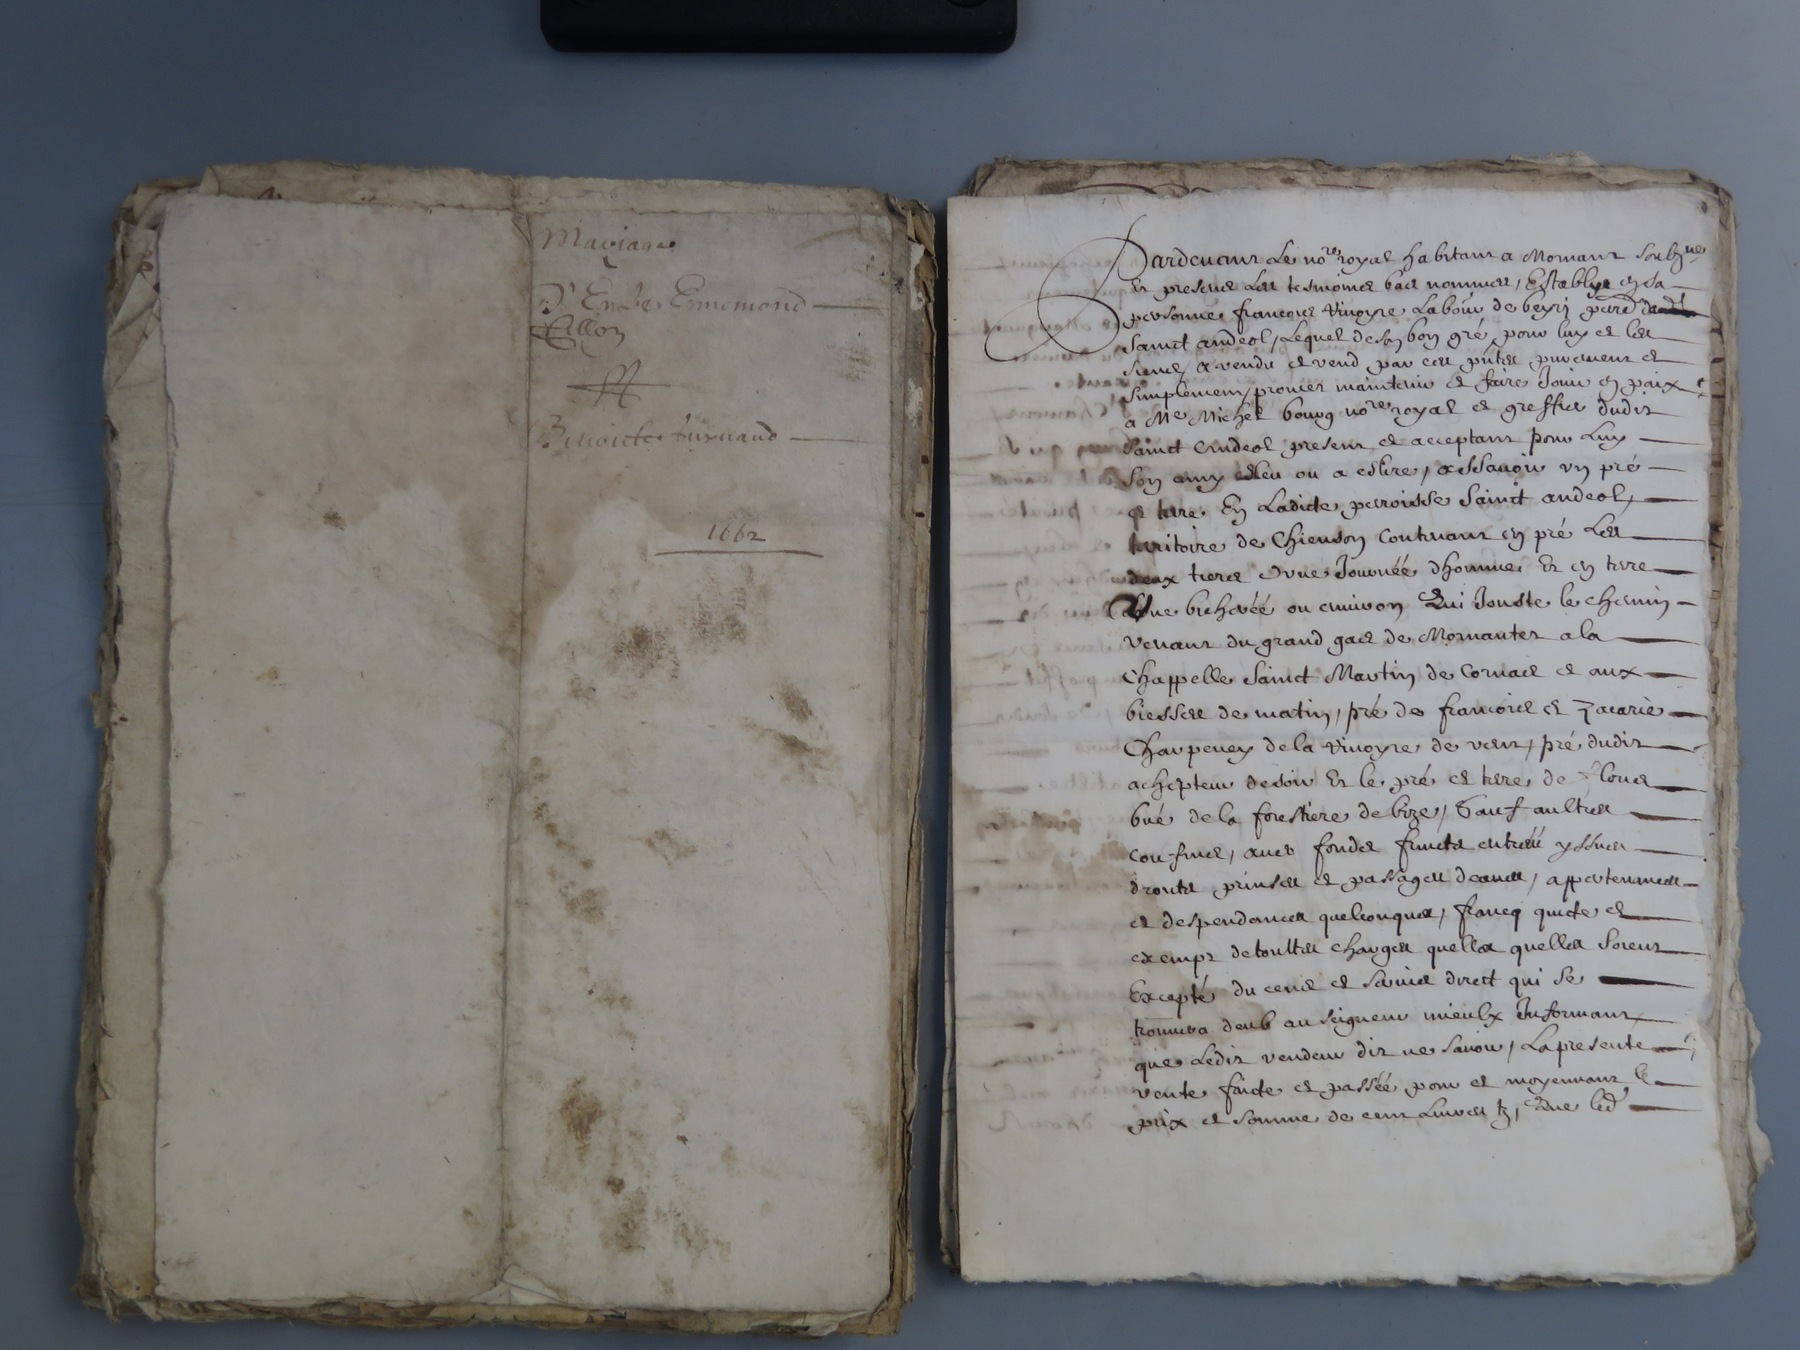 Mariage
D'Entre Ennemond
Villon
Et
Benoicte
1662
Pardevant Le no.re royal habitant a Mornant soubz.né
Et presens Les tesmoins bas nommes, Estably en sa
personne francois Vinoyre Labour de
Sainct andeol, Lequel de son bon gré pour luy et les
siens, a vendu et vend par ces p̄ntes purement et
simplement, promet maintenir et faire Jouir en paix
a M.e Michel bourg no.re royal et greffier dudit
Sainct Andeol present et acceptant pour Luy
son amy esleu ou a eslire, assavoir un pré
et terre En Ladicte parroisse Sainct andeol,
territoire de Chienson Contenant en pré Les
deux tiers d'une Journéé dhomme Et en terre
Une bicheréé ou environ Qui Jouste le chemin
venant du grand gaet de Mornantet a la
Chappelle Sainct Martin de Cornas et aux
biesses de matin, pré de francois et Zacarie
Charpeney de la Vinoyre de vent, pré dudit
achepteur de soir Et le pré et terre de
de la forestiere de bize, Sauf aultres
confins, avec fonds fruicts entréé yssues
droicts prinses et passages deaues, appertenances
et despendances quelconques, francq quicte et
exempt de toultes charges quelles quelles soient
Excepté du cens et servis direct qui se
trouvera deub au seigneur mieulx Informant
que Ledit vendeur dit ne savoir, La presente
vente faicte et passéé pour et moyennant le
prix et somme de cent Livres tz, Que led.